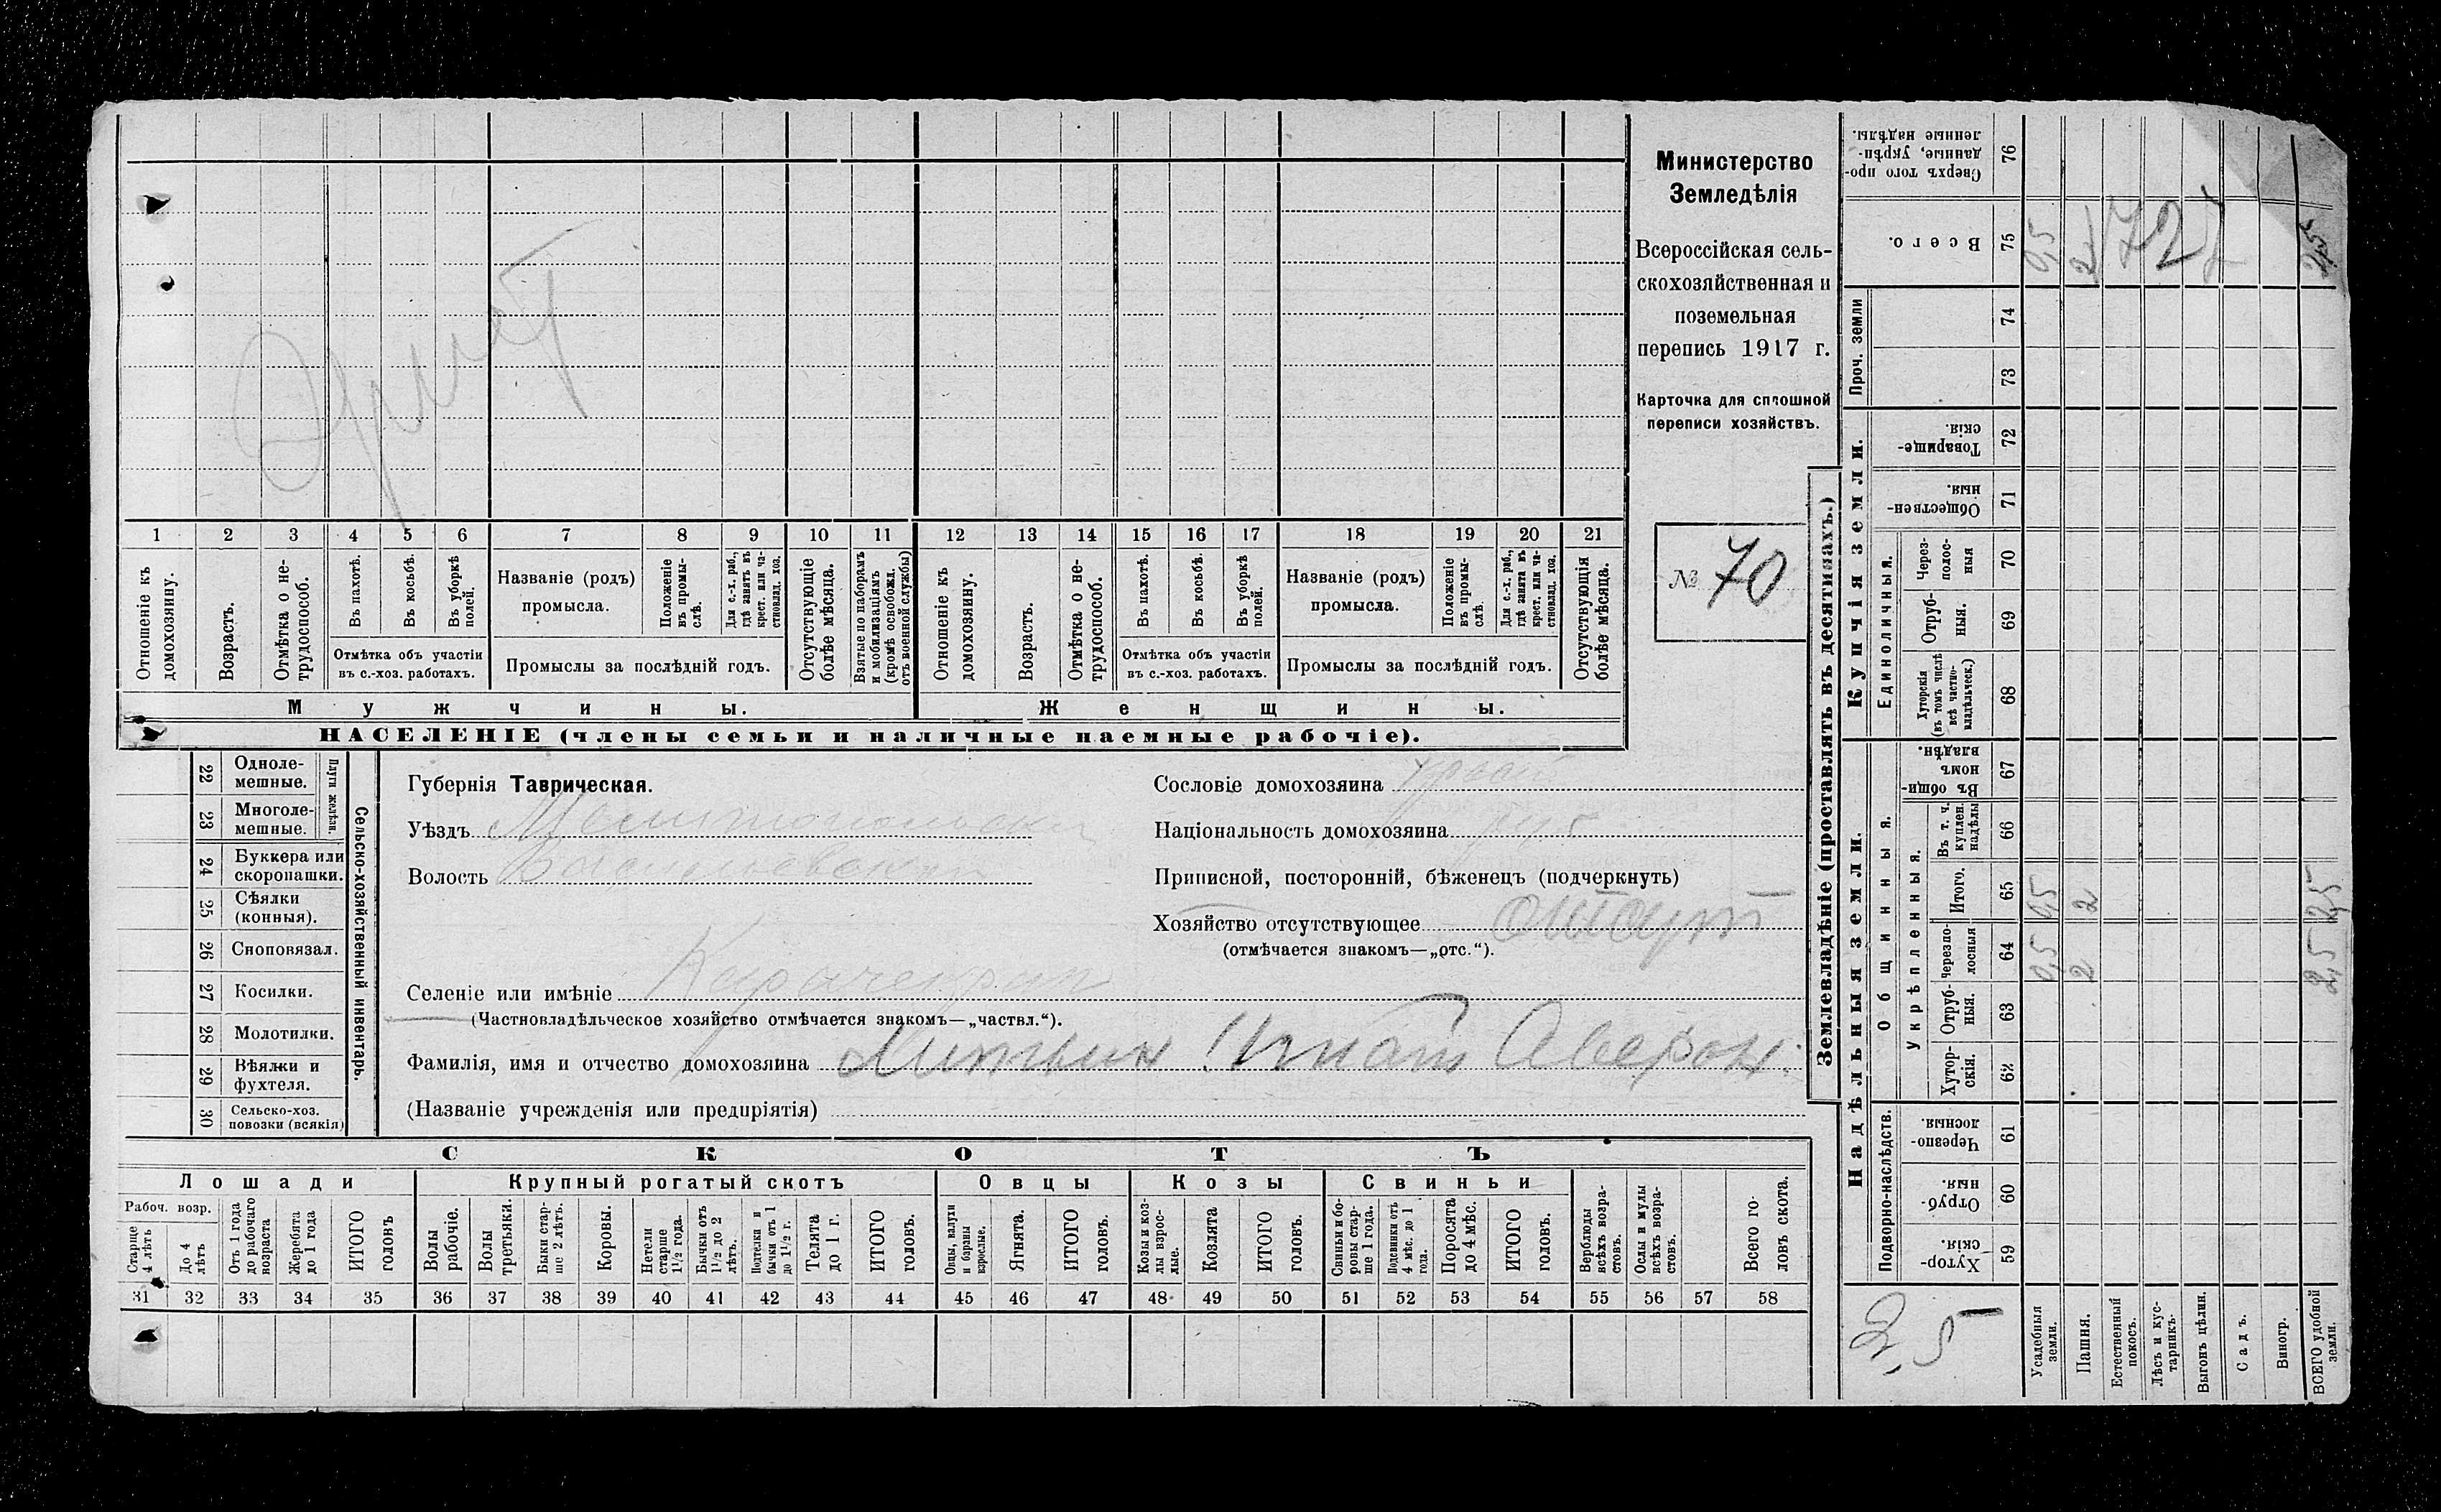 Министерство
Земледѣлія
Всероссійская сель-
скохозяйственная и
поземельная
перепись 1917 г.
Карточка для сплошной
переписи хозяйствъ.
№ 70
1 2 3 4 5 6 7 8 9 10 11 12 13 14 15 16 17 18 19 20 21
Отношеніе къ домохозяину.
Возрастъ.
Отмѣтка о не-трудоспособ.
Въ пахотѣ.
Въ косьбѣ.
Въ уборкѣ полей.
Отмѣтка объ участіи
въ с.-хоз. работахъ.
Названіе (родъ)
промысла.
Положеніе въ промы-слѣ.
Для с.-х. раб., гдѣ занятъ въ крест. или ча-стновлад. хоз.
Промыслы за послѣдній годъ.
Отсутствующіе болѣе мѣсяца.
Взятые по наборамъ и мобилизаціямъ (кромѣ освобожд. отъ военной службы)
Отношеніе къ домохозяину.
Возрастъ.
Отмѣтка о не-трудоспособ.
Въ пахотѣ.
Въ косьбѣ.
Въ уборкѣ полей.
Отмѣтка объ участіи
въ с.-хоз. работахъ.
Названіе (родъ)
промысла.
Положеніе въ промы-слѣ.
Для с.-х. раб., гдѣ занята въ крест. или ча-стновлад. хоз.
Промыслы за послѣдній годъ.
Отсутствующія болѣе мѣсяца.
Мужчины.
Женщины.
НАСЕЛЕНІЕ (члены семьи и наличные наемные рабочіе).
22 Одноле-мешные.
23 Многоле-мешные.
Плуги желѣзн.
24 Буккера или скоропашки.
25 Сѣялки (конныя).
26 Сноповязал.
27 Косилки.
28 Молотилки.
29 Вѣялки и фухтеля.
30 Сельско-хоз. повозки (всякія)
Сельско-хозяйственный инвентарь.
Губернія Таврическая.
Уѣздъ Мелитопольский
Волость Васильевская
Селеніе или имѣніе
(Частновладѣльческое хозяйство отмѣчается знакомъ—„частвл.“).
Фамилія, имя и отчество домохозяина Литвин Игнат Аверон.
(Названіе учрежденія или предпріятія)
Сословіе домохозяина
Національность домохозяина рус
Приписной, посторонній, бѣженецъ (подчеркнуть)
Хозяйство отсутствующее отсут
(отмѣчается знакомъ—„отс.“).
СКОТЪ
Лошади
Крупный рогатый скотъ
Овцы
Козы
Свиньи
Рабоч. возр.
Старше 4 лѣтъ
До 4 лѣтъ
Отъ 1 года до рабочаго возраста
Жеребята до 1 года
ИТОГО головъ
Волы рабочіе.
Волы третьяки.
Быки стар-ше 2 лѣтъ.
Коровы.
Нетели старше 1½ года.
Бычки отъ 1½ до 2 лѣтъ.
Подтелки и бычки отъ 1 до 1½ г.
Телята до 1 г.
ИТОГО головъ.
Овцы, валухи и бараны взрослые.
Ягнята.
ИТОГО головъ.
Козы и коз-лы взрос-лые.
Козлята
ИТОГО головъ.
Свиньи и бо-ровы стар-ше 1 года.
Подсвинки отъ 4 мѣс. до 1 года.
Поросята до 4 мѣс.
ИТОГО головъ.
Верблюды всѣхъ возра-стовъ.
Ослы и мулы всѣхъ возра-стовъ.
Всего го-ловъ скота.
31 32 33 34 35 36 37 38 39 40 41 42 43 44 45 46 47 48 49 50 51 52 53 54 55 56 57 58
Землевладѣніе (проставлять въ десятинахъ.)
Надѣльныя земли.
Купчія земли.
Проч. земли
Подворно-наслѣдств.
Общинныя.
Укрѣпленныя.
Единоличныя.
Хутор-скія. 59
Отруб-ныя. 60
Черезпо-лосныя. 61
Хутор-скія. 62
Отруб-ныя. 63
Черезпо-лосныя 64 0,5 2 2,5
Итого. 65 0,5 2 2,5
Въ т. ч. куплен. надѣлы 66
Въ общи-номъ владѣн. 67
Хуторскія (въ томъ числѣ всѣ частно-владѣльческ.) 68
Отруб-ныя. 69
Через-полос-ныя 70
Обществен-ныя. 71
Товарище-скія. 72
73
74
Всего. 75 0,5 2 2,5
727
Сверхъ того про-данные, укрѣп-ленные надѣлы. 76
2,5
Усадебныя земли.
Пашня.
Естественный покосъ.
Лѣсъ и кус-тарникъ.
Выгонъ цѣлин.
Садъ.
Виногр.
ВСЕГО удобной земли.